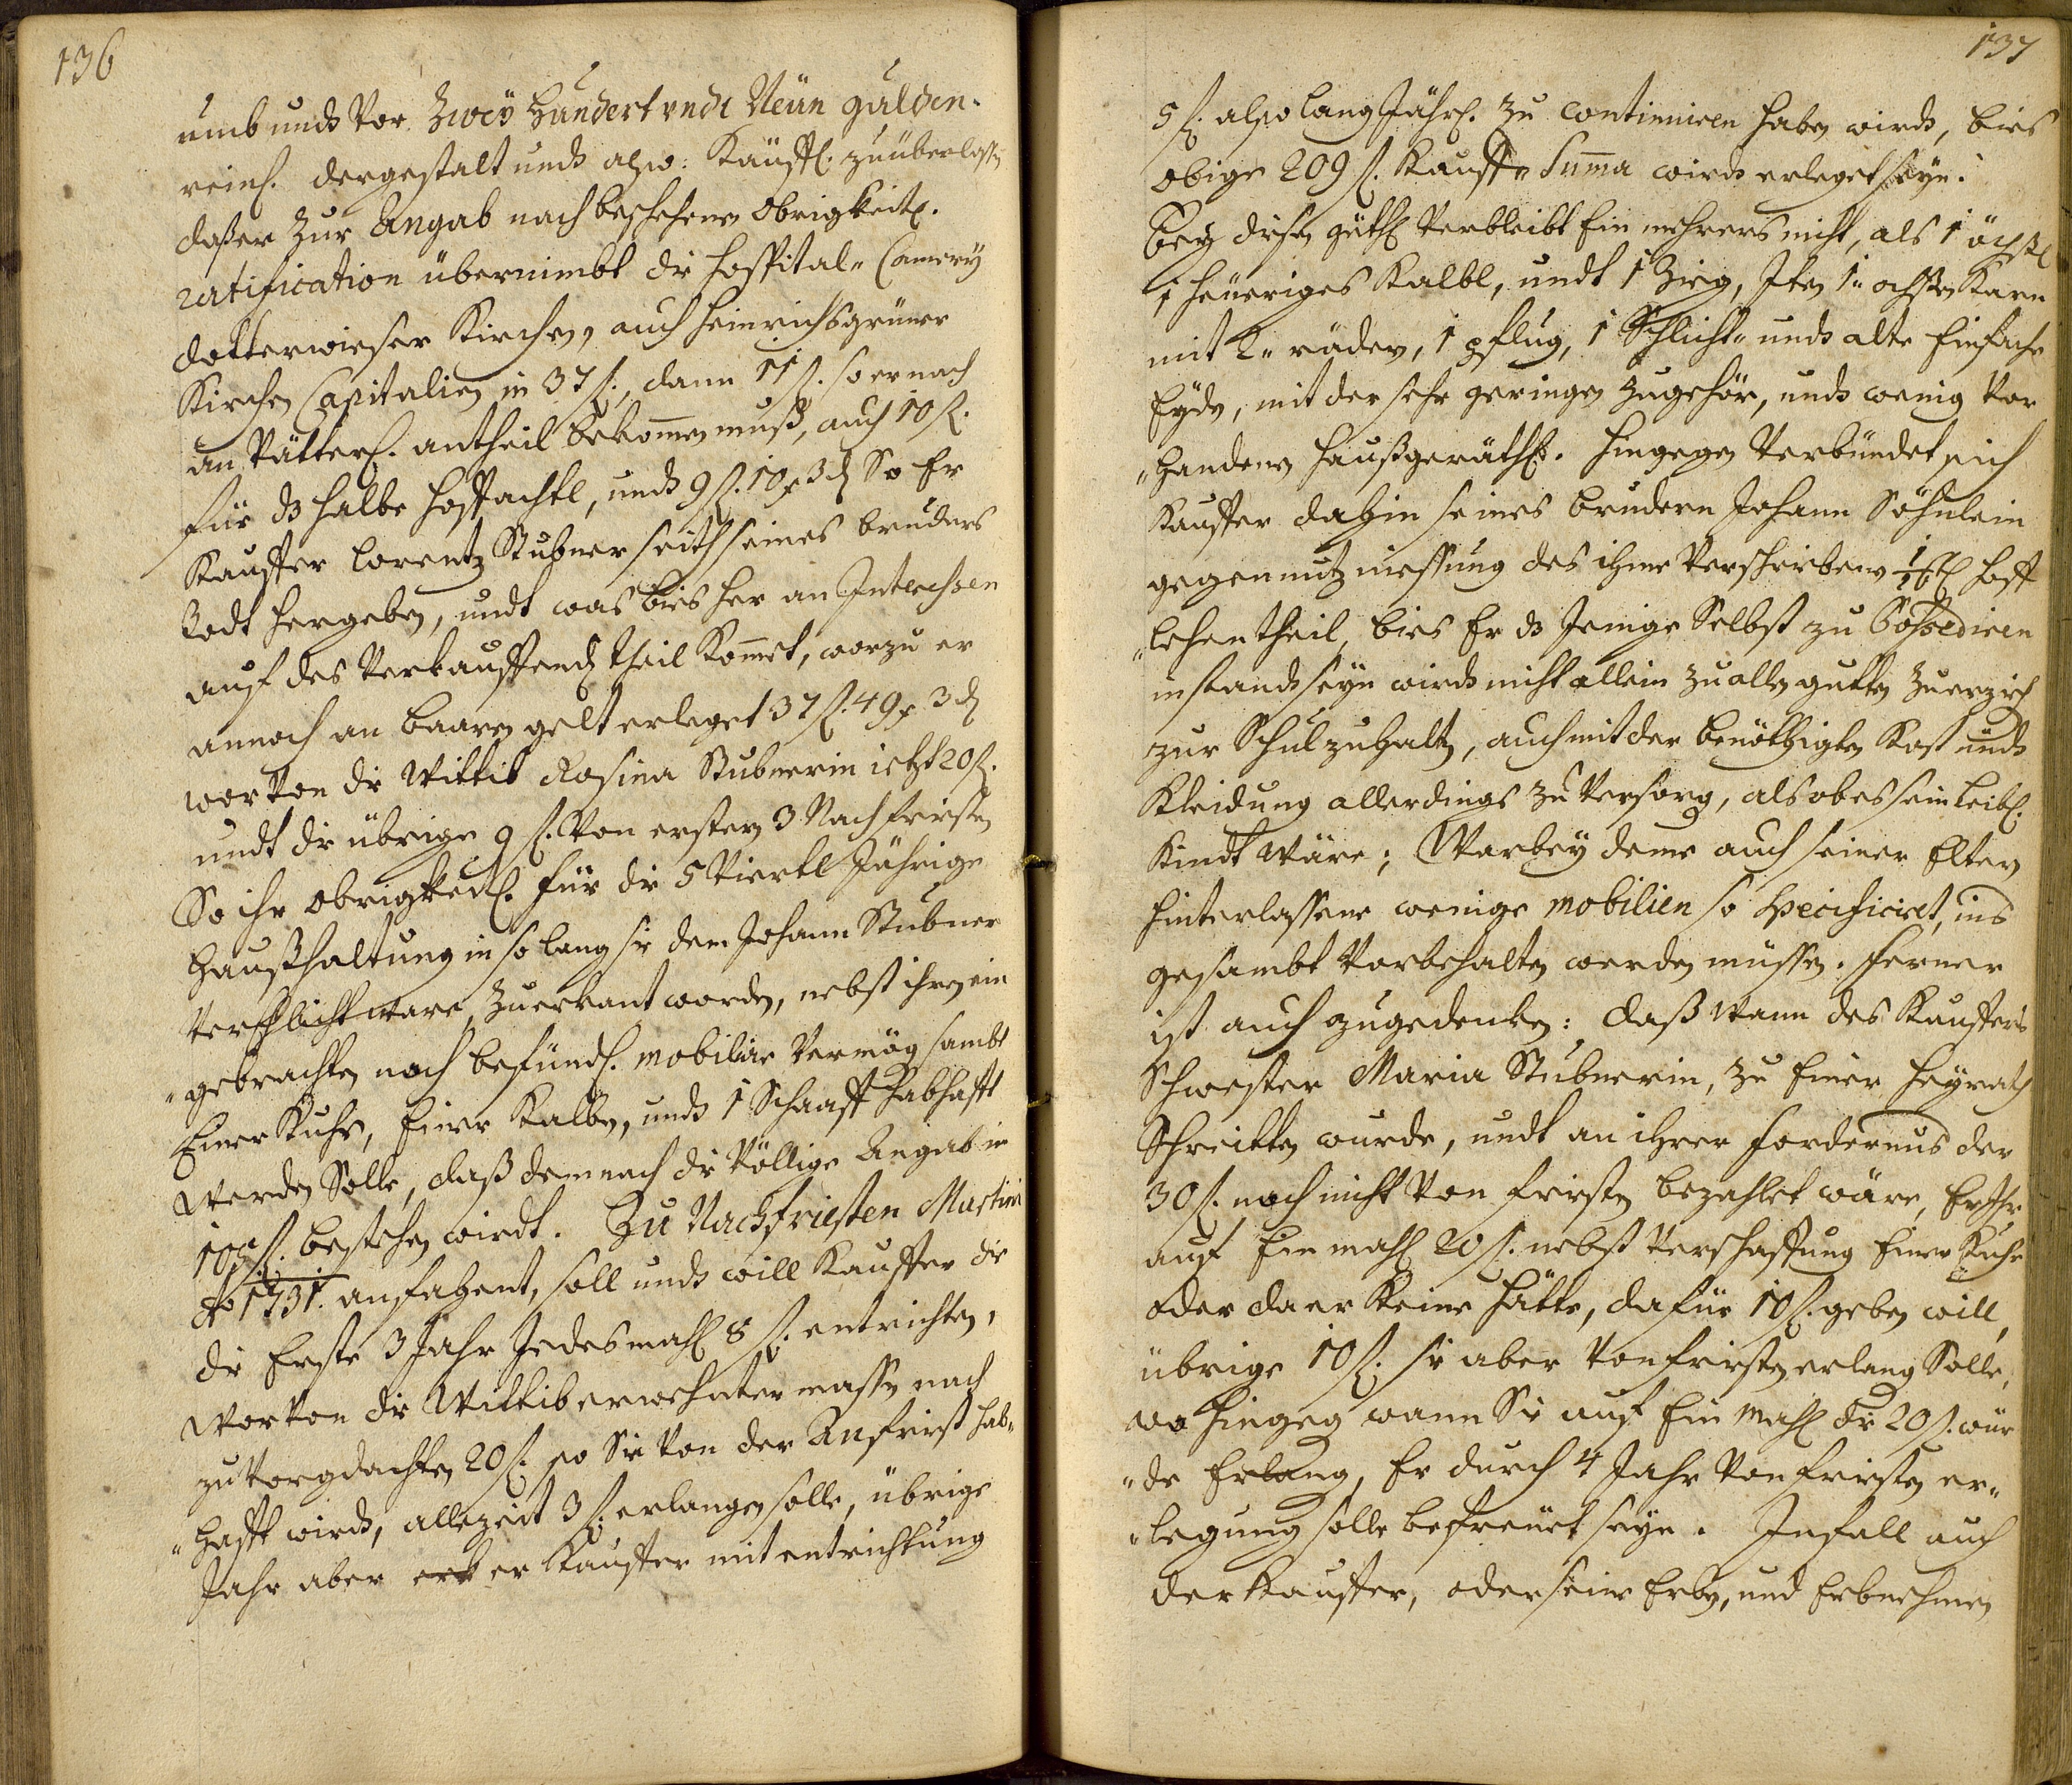 136
umb undt Vor. Zweÿ Hundert undt Neün gulden.
reinl. dergestalt undt also: Käuffl. zuüberlassen
daß er Zur Angab nach beschehener Obrigkeitl.
ratification übernimbt die Hospital- Camerÿ
dotterwieser Kirchen, auch Heinrichsgrüner
Kirchen Capitalien in 37 f., dann 11 f. so er nach
an Vätterl. antheil bekomen muß, auch 10 f.
für ds halbe Hoffachtl, undt 9 f. 10 x 3 d So Er
Kauffer Lorentz Stubner seith seines bruders
Todt hergeben, undt was bies her an Interessen
auf des Verkauffend theil Komet, worzu er
annoch an baaren gelt erleget 37 f. 49 x 3 d
worvon die Wittib Rosina Stubnerin ietzt 20 f.
undt die übrige 9 f. Von ersten 3 Nachfristen
So ihr obrigkeitl. für die 5 Viertl Jährige
Haußhaltung in so lang sie dem Johann Stubner
Verehlicht ware, zuerkant worden, nebst ihren ein
"gebrachten noch befündl. mobiliar Vermög sambt
Einer Kuhe, Einer Kalben, undt 1 Schaaff habhafft
Werden Solle, daß demnach die Völlige Angab in
f. bestehen wirdt. Zu Nachfriesten Martini
ao 1731. anfahent, soll undt will Kauffer die
die Erste 3 Jahr Jedesmahl 8 f. entrichten,
Worvon die Wittib erwehnter massen nach
zu Vorgedachten 20 f. so Sie von der Anfrist hab"
"hafft wirdt, allezeit 3 f. erlangen solle, übrige
Jahr aber er Kauffer mit entrichtung
137
5 f. also lang Jährl. zu continuiren haben wirdt, bies
obige 209 f. Kauff" Suma wirdt erleget seÿn.
Beÿ diesen güthl Verbleibt Ein mehrers nicht, als 1 öchßl
1 heueriges Kalbl, undt 1 Zieg, Item 1" ochsen Karn
mit 2" räder, 1 pflug, 1 Schlicht" undt alte Einfache
Eyde, mit der sehr geringen Zugehör, undt wenig Vor
"handenen Haußgeräthl. Hingegen Verbündet sich
Kauffer dahin seines brudern Johann Söhnlein
gegen nutz niessung des ihme Verschriebenen 1/16tl Hoff
"lehentheil, bies Er ds Jenige Selbst zu Possediren
in standt seÿn wirdt nicht allein zu allen gutten Zuerzieh
zur Schul zuhalten, auch mit der benöthigten Kost undt
Kleidung allerdings zu Versorg, als ob es sein Leibl.
Kindt wäre; Warbeÿ deme auch seiner Eltern
Hinterlassene wenige mobilien so specificiret, ins
gesambt Vorbehalten werden müssen. Ferner
ist auch zugedenken: daß Wann des Kauffers
Schwester Maria Stubnerin, zu Einer Heÿrath
Schreitten wurde, undt an ihrer Fordernus der
30 f. noch nicht Von fristen bezahlet wäre, Er Ihr
auf Ein mahl 20 f. nebst Verschaffung Einer Kuhe
oder da er Keine hätte, dafür 10 f. geben will,
übrige 10 f. sie aber Von fristen erlang Solle,
wo hingeg wann Sie auf Ein mahl die 20 f. wür
"de Erlang, Er durch 4 Jahr Von fristen er"
"legung solle befreuet seÿn. Infall auch
der Kauffer, oder seine Erben, und Erbnehmen